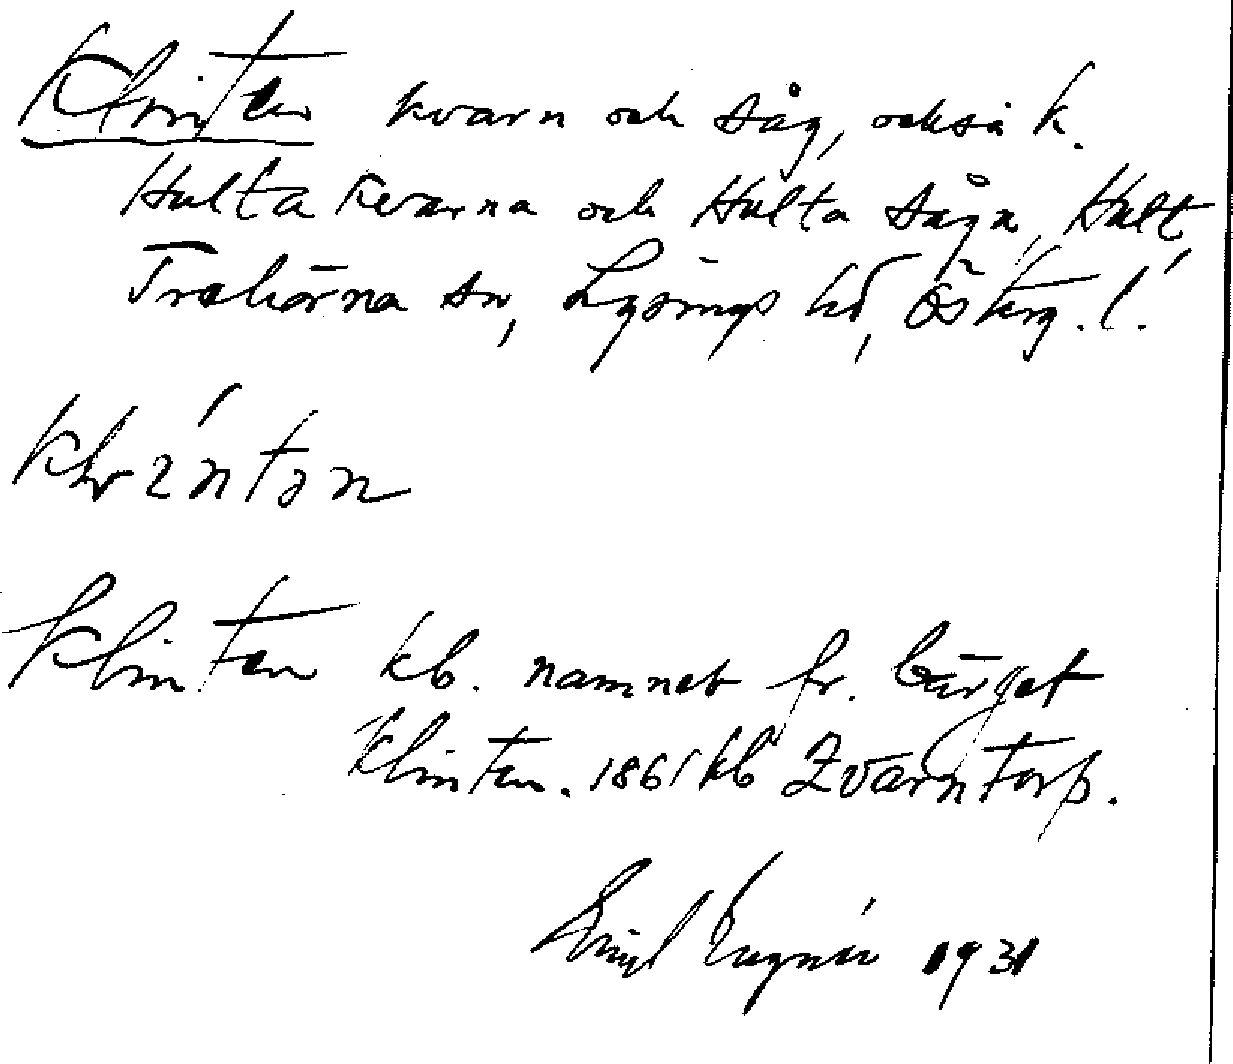 Klinten kvarn och såg, också k.
Hulta kvarna och Hulta sågа, Hult,
Trehörna sn, Lysings hd, Österg. l.
Klinten kb. namnet fr. bärget
Klinten. 1861 kb Qvarntorp.
1931